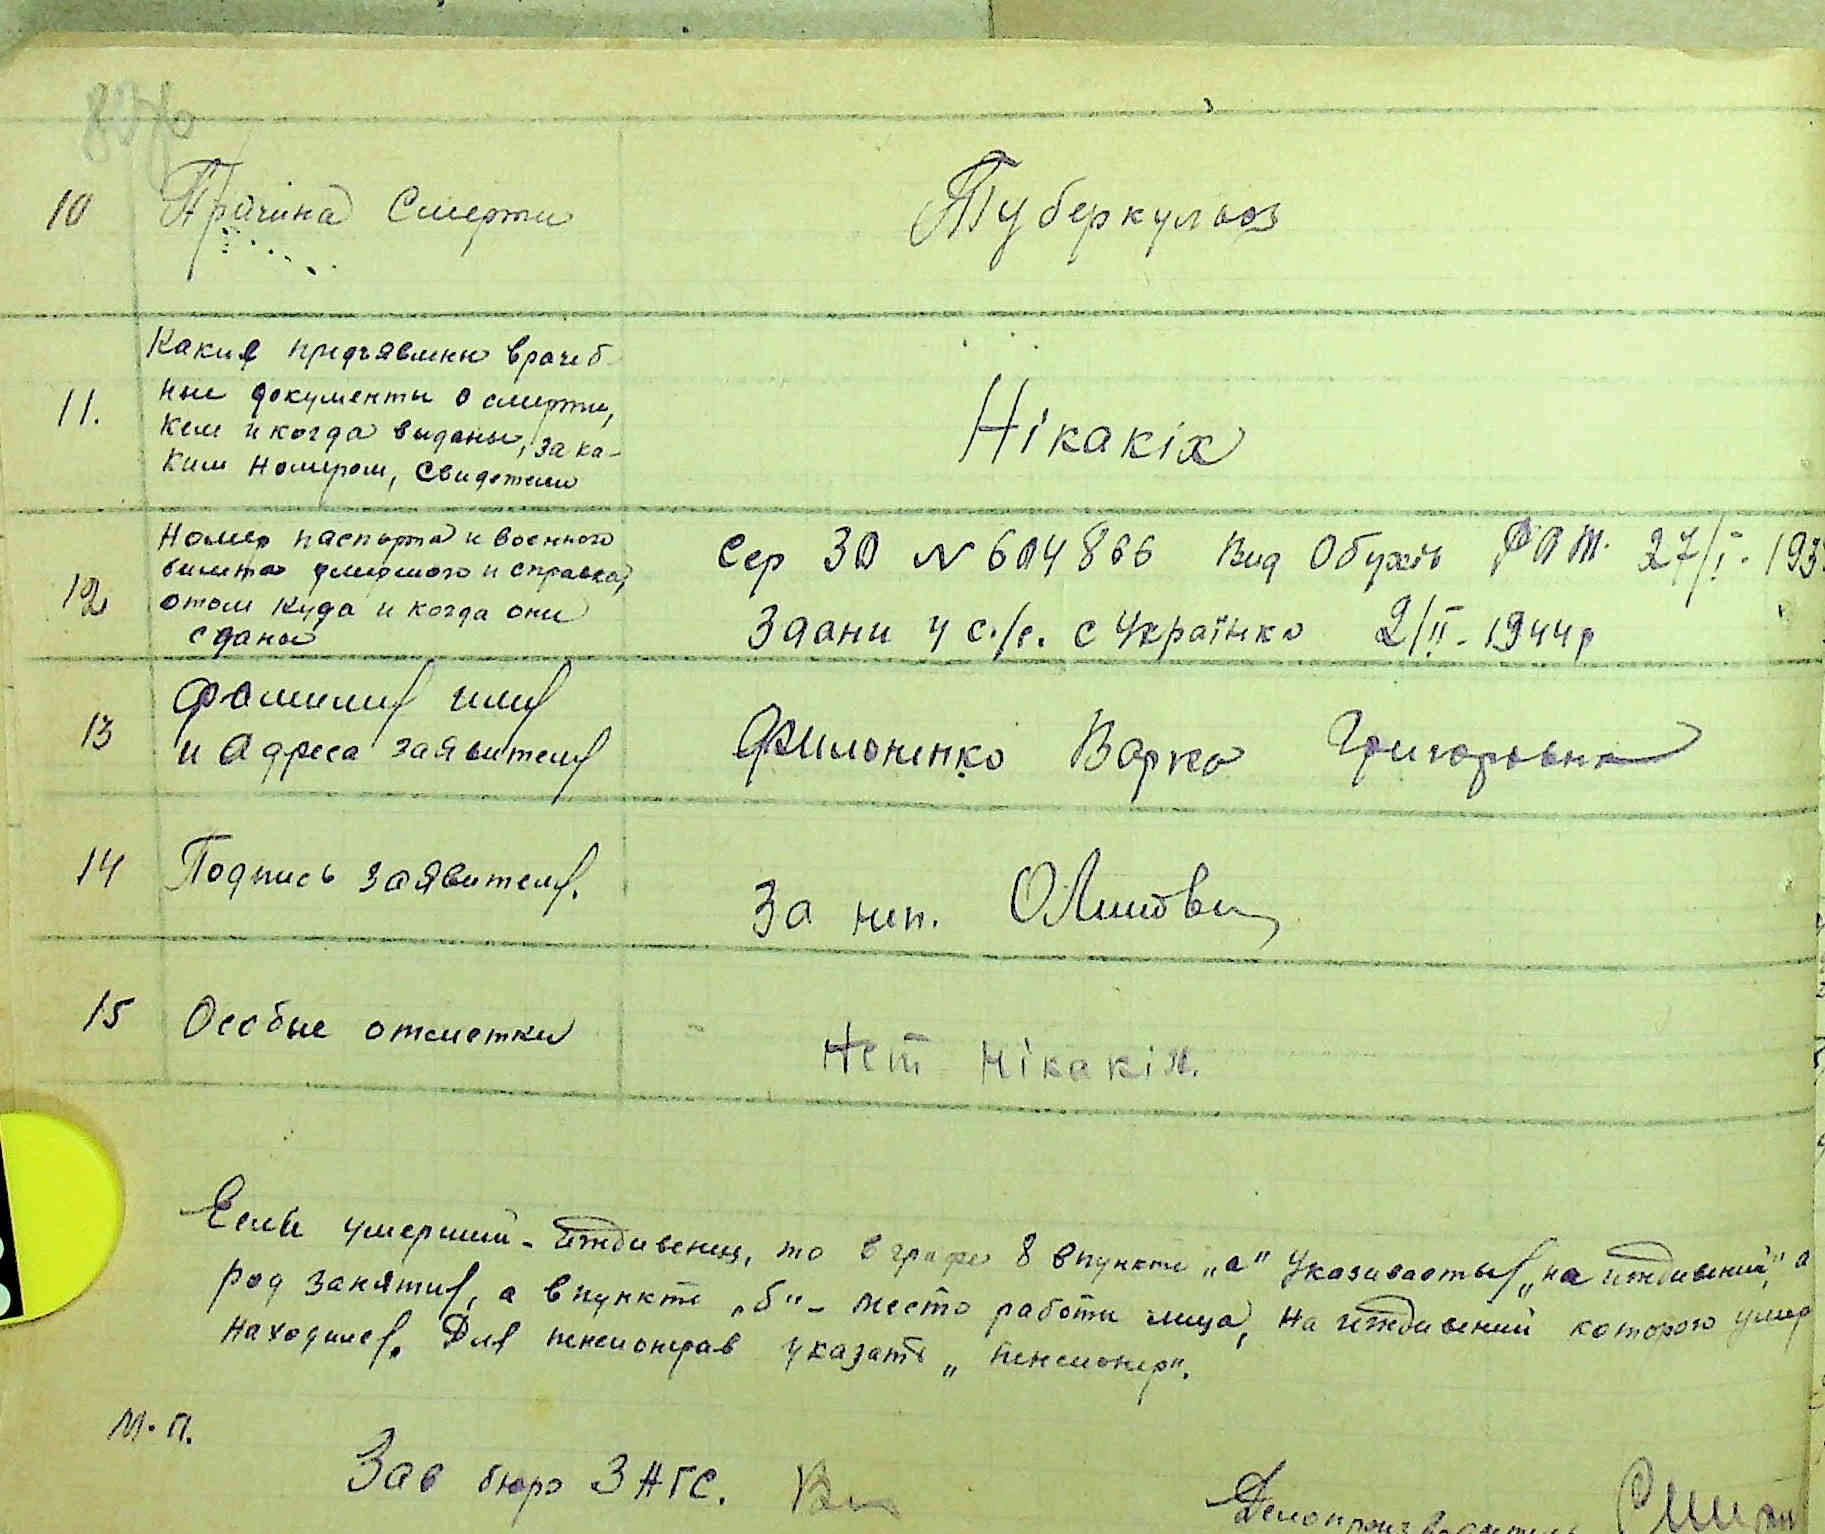 10 Причина Смерти Туберкульоз
11. Какие предъявлены врачеб-
ные документы о смерти,
кем и когда выданы, за ка-
ким номером, свидетели
Нікакіх
12 Номер паспорта и военного
билета умершого и справка,
отом куда и когда они
сданы
Сер ЗО № 604866 Вид Обухів РОМ. 27/I - 193
Здани у с./с. с Українка 2/II - 1944р
13 Фамилия имя
и Адреса заявителя
Филоненко Варка Григоровна
14 Подпись заявителя. За неп.
15 Особые отметки Нет Нікакіх.
Если умерший - иждивенец, то в графе 8 впункте „а" указивается „на иждивений", а
род занятия, а в пункте „б" - место работи лица, на иждивений которого умер
находился. Для пенсионерав указать „пенсионер".
М.П.
Зав бюро ЗАГС.
Делопроизводитель